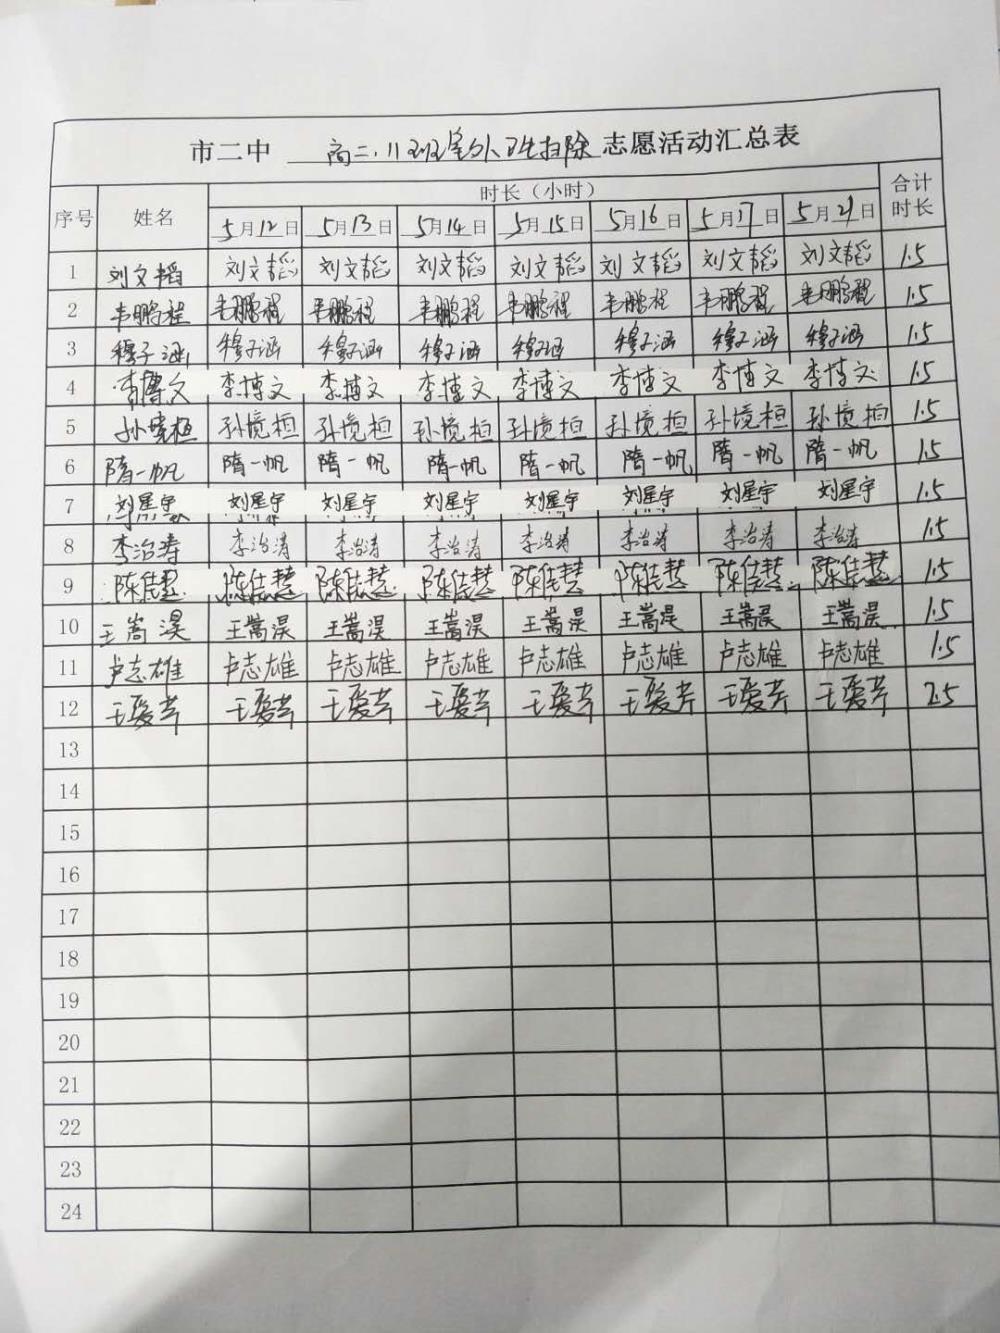 市二中 高二.11班室外卫生扫除志愿活动汇总表
序号 姓名 时长（小时） 合计时长
5月12日 5月13日 5月14日 5月15日 5月16日 5月17日 5月21日
1 刘文韬 刘文韬 刘文韬 刘文韬 刘文韬 刘文韬 刘文韬 刘文韬 1.5
2 韦鹏程 韦鹏程 韦鹏程 韦鹏程 韦鹏程 韦鹏程 韦鹏程 韦鹏程 1.5
3 穆子涵 穆子涵 穆子涵 穆子涵 穆子涵 穆子涵 穆子涵 穆子涵 1.5
4 李博文 李博文 李博文 李博文 李博文 李博文 李博文 李博文 1.5
5 孙境桓 孙境桓 孙境桓 孙境桓 孙境桓 孙境桓 孙境桓 孙境桓 1.5
6 隋一帆 隋一帆 隋一帆 隋一帆 隋一帆 隋一帆 隋一帆 隋一帆 1.5
7 刘星宇 刘星宇 刘星宇 刘星宇 刘星宇 刘星宇 刘星宇 刘星宇 1.5
8 李治涛 李治涛 李治涛 李治涛 李治涛 李治涛 李治涛 李治涛 1.5
9 陈佳慧 陈佳慧 陈佳慧 陈佳慧 陈佳慧 陈佳慧 陈佳慧 陈佳慧 1.5
10 王嵩淏 王嵩淏 王嵩淏 王嵩淏 王嵩淏 王嵩淏 王嵩淏 王嵩淏 1.5
11 卢志雄 卢志雄 卢志雄 卢志雄 卢志雄 卢志雄 卢志雄 卢志雄 1.5
12 王爱芹 王爱芹 王爱芹 王爱芹 王爱芹 王爱芹 王爱芹 王爱芹 2.5
13
14
15
16
17
18
19
20
21
22
23
24